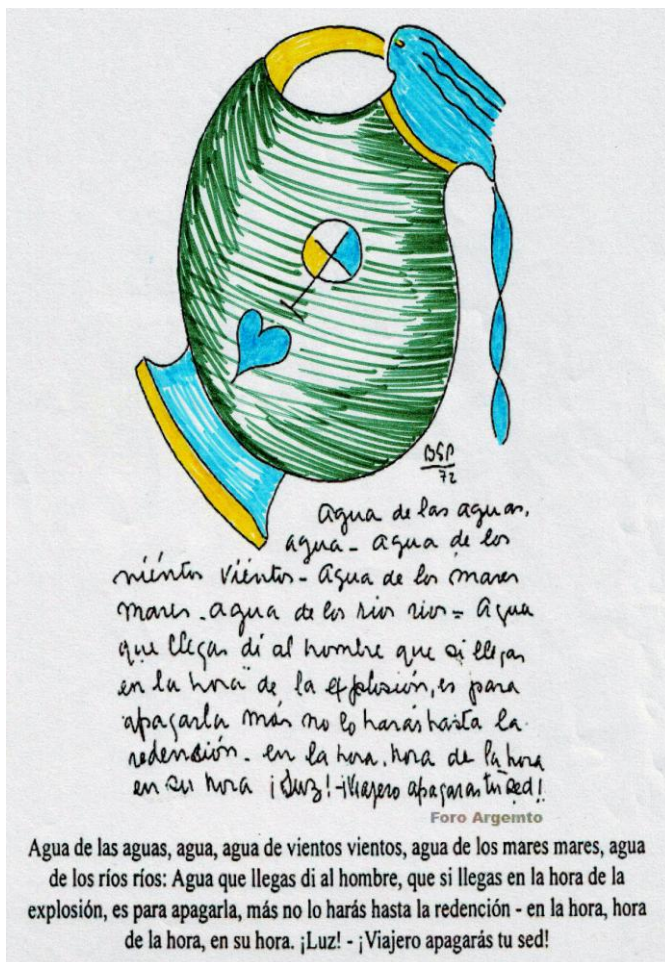 BSP
72
Agua de las aguas,
agua - agua de los
viéntos viéntos - Agua de los mares
mares - agua de los rios rios = Agua
que llegas di al hombre que si llegas
en la hora de la explosión, es para
apagarla más no lo harás hasta la
redención - en la hora, hora de la hora
en su hora ¡Luz! - ¡Viajero apagaras tu sed!
Foro Argemto
Agua de las aguas, agua, agua de vientos vientos, agua de los mares mares, agua
de los ríos ríos: Agua que llegas di al hombre, que si llegas en la hora de la
explosión, es para apagarla, más no lo harás hasta la redención - en la hora, hora
de la hora, en su hora. ¡Luz! - ¡Viajero apagarás tu sed!